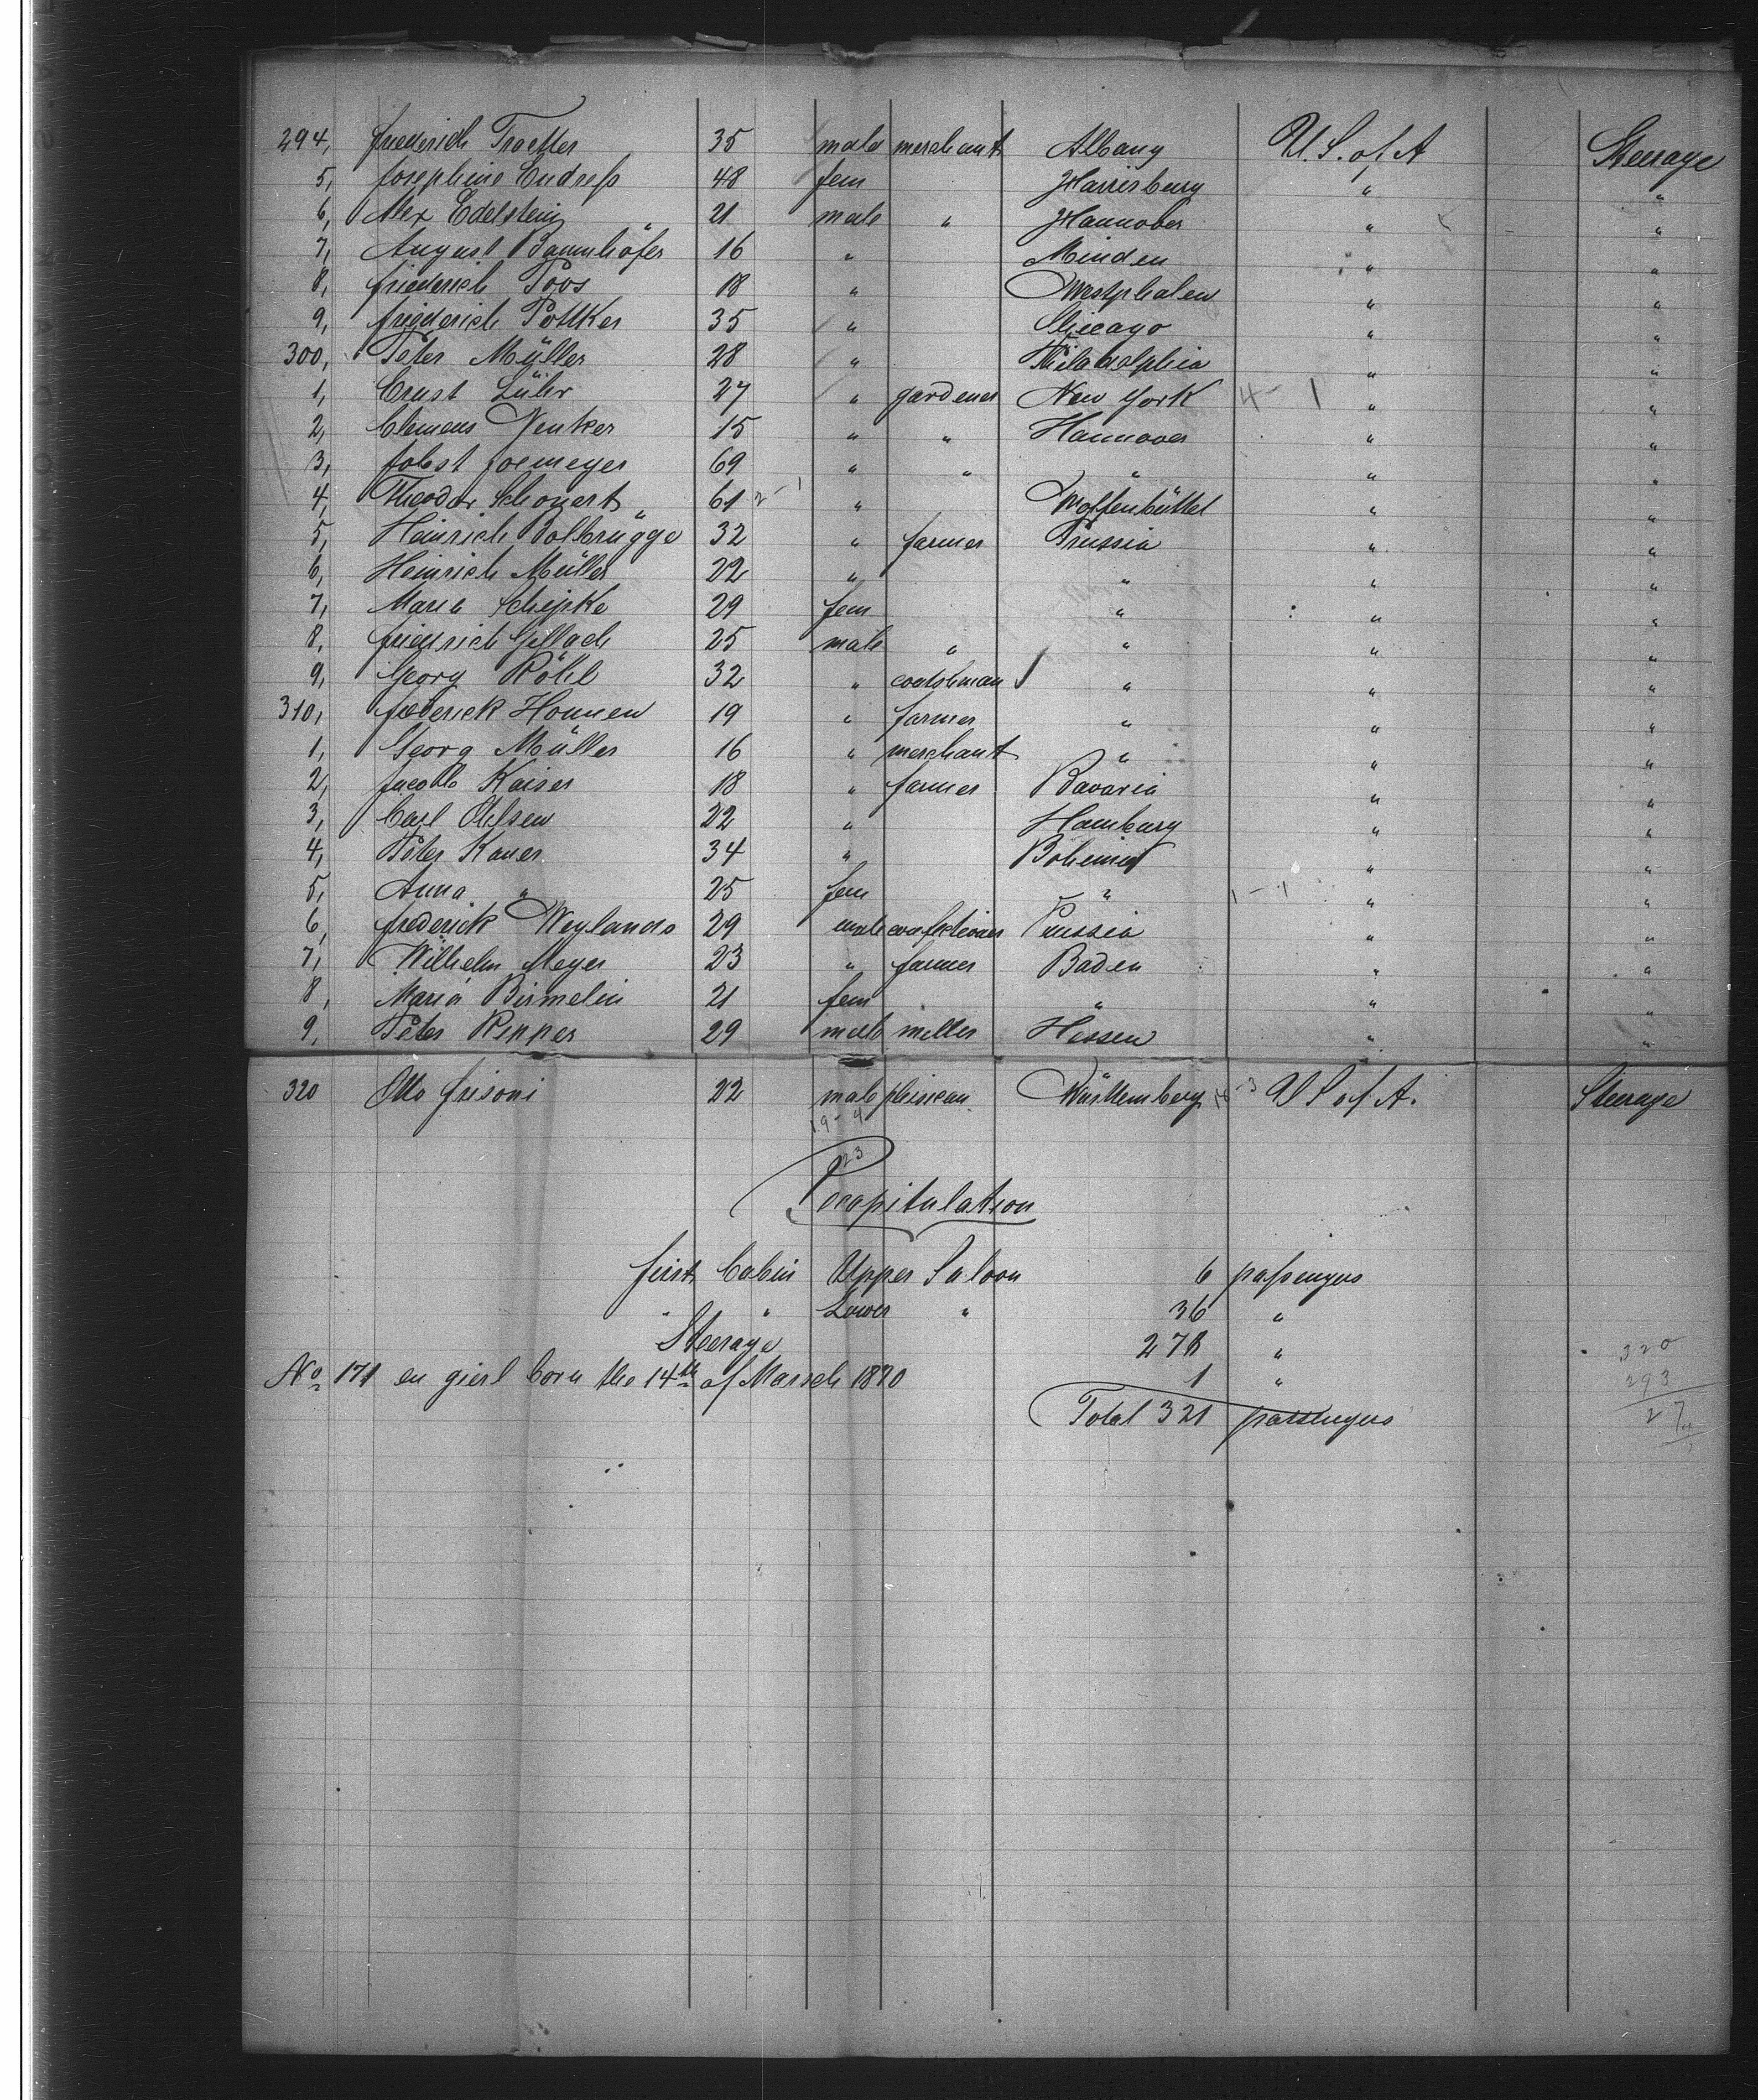 294, Frederich Troetter 35 male merchant Albany U. S. of A Steerage
5, Josephine Endreß 48 fem Harrisburg " "
6, Alex Edelstein " 21 male " Hannober " "
7, August Baumhöfer 16 " Minden " "
8, Friederich Poos 18 " Westphalen " "
9, Friederich Pottker 35 " Chicago " "
300, Peter Müller 28 " Philadelphia " "
1, Ernst Lühr 27 " gardener New York 4 - 1 " "
2, Clemens Venker 15 " " Hannover " "
3, Jobst Joemeyer 69 " " " " "
4, Theodor Schonert " 61 2 - 1 " Wolfenbüttel " "
5, Heinrich Bolbrügge 32 " farmer Prussia " "
6, Heinrich Müller 22 " " " "
7, Maria Schipke 29 fem " " "
8, Friedrich Gerlach 25 male " " " "
9, Georg Röhl 32 " coatshman " " "
310, Frederick Honnen 19 " farmer " " "
1, Georg Müller 16 " merchant " " "
2, Jacob Kaiser 18 " farmer Bavaria " "
3, Carl Ohlsen 22 " Hamburg " "
4, Peter Kauer 34 " Bohemia " "
5, Anna " 25 fem " 1 - 1 " "
6, Frederick Weylands 29 male confektioner Prussia " "
7, Wilhelm Meyer 23 " farmer Baden " "
8, Maria Birmelin 21 fem " " "
9, Peter Repper 29 male miller Hessen " "
320 Otto Frisoni 22 male Württemberg 16 - 3 U S of A. Steerage
19 - 4
23
Recapitulation
First Cabin Upper Saloon 6 paßengers
" " Lower " 36 "
Steerage 278 "
320
No 171 en gierl born the 14th of March 1870 1 "
293
Total 321 passengers
27